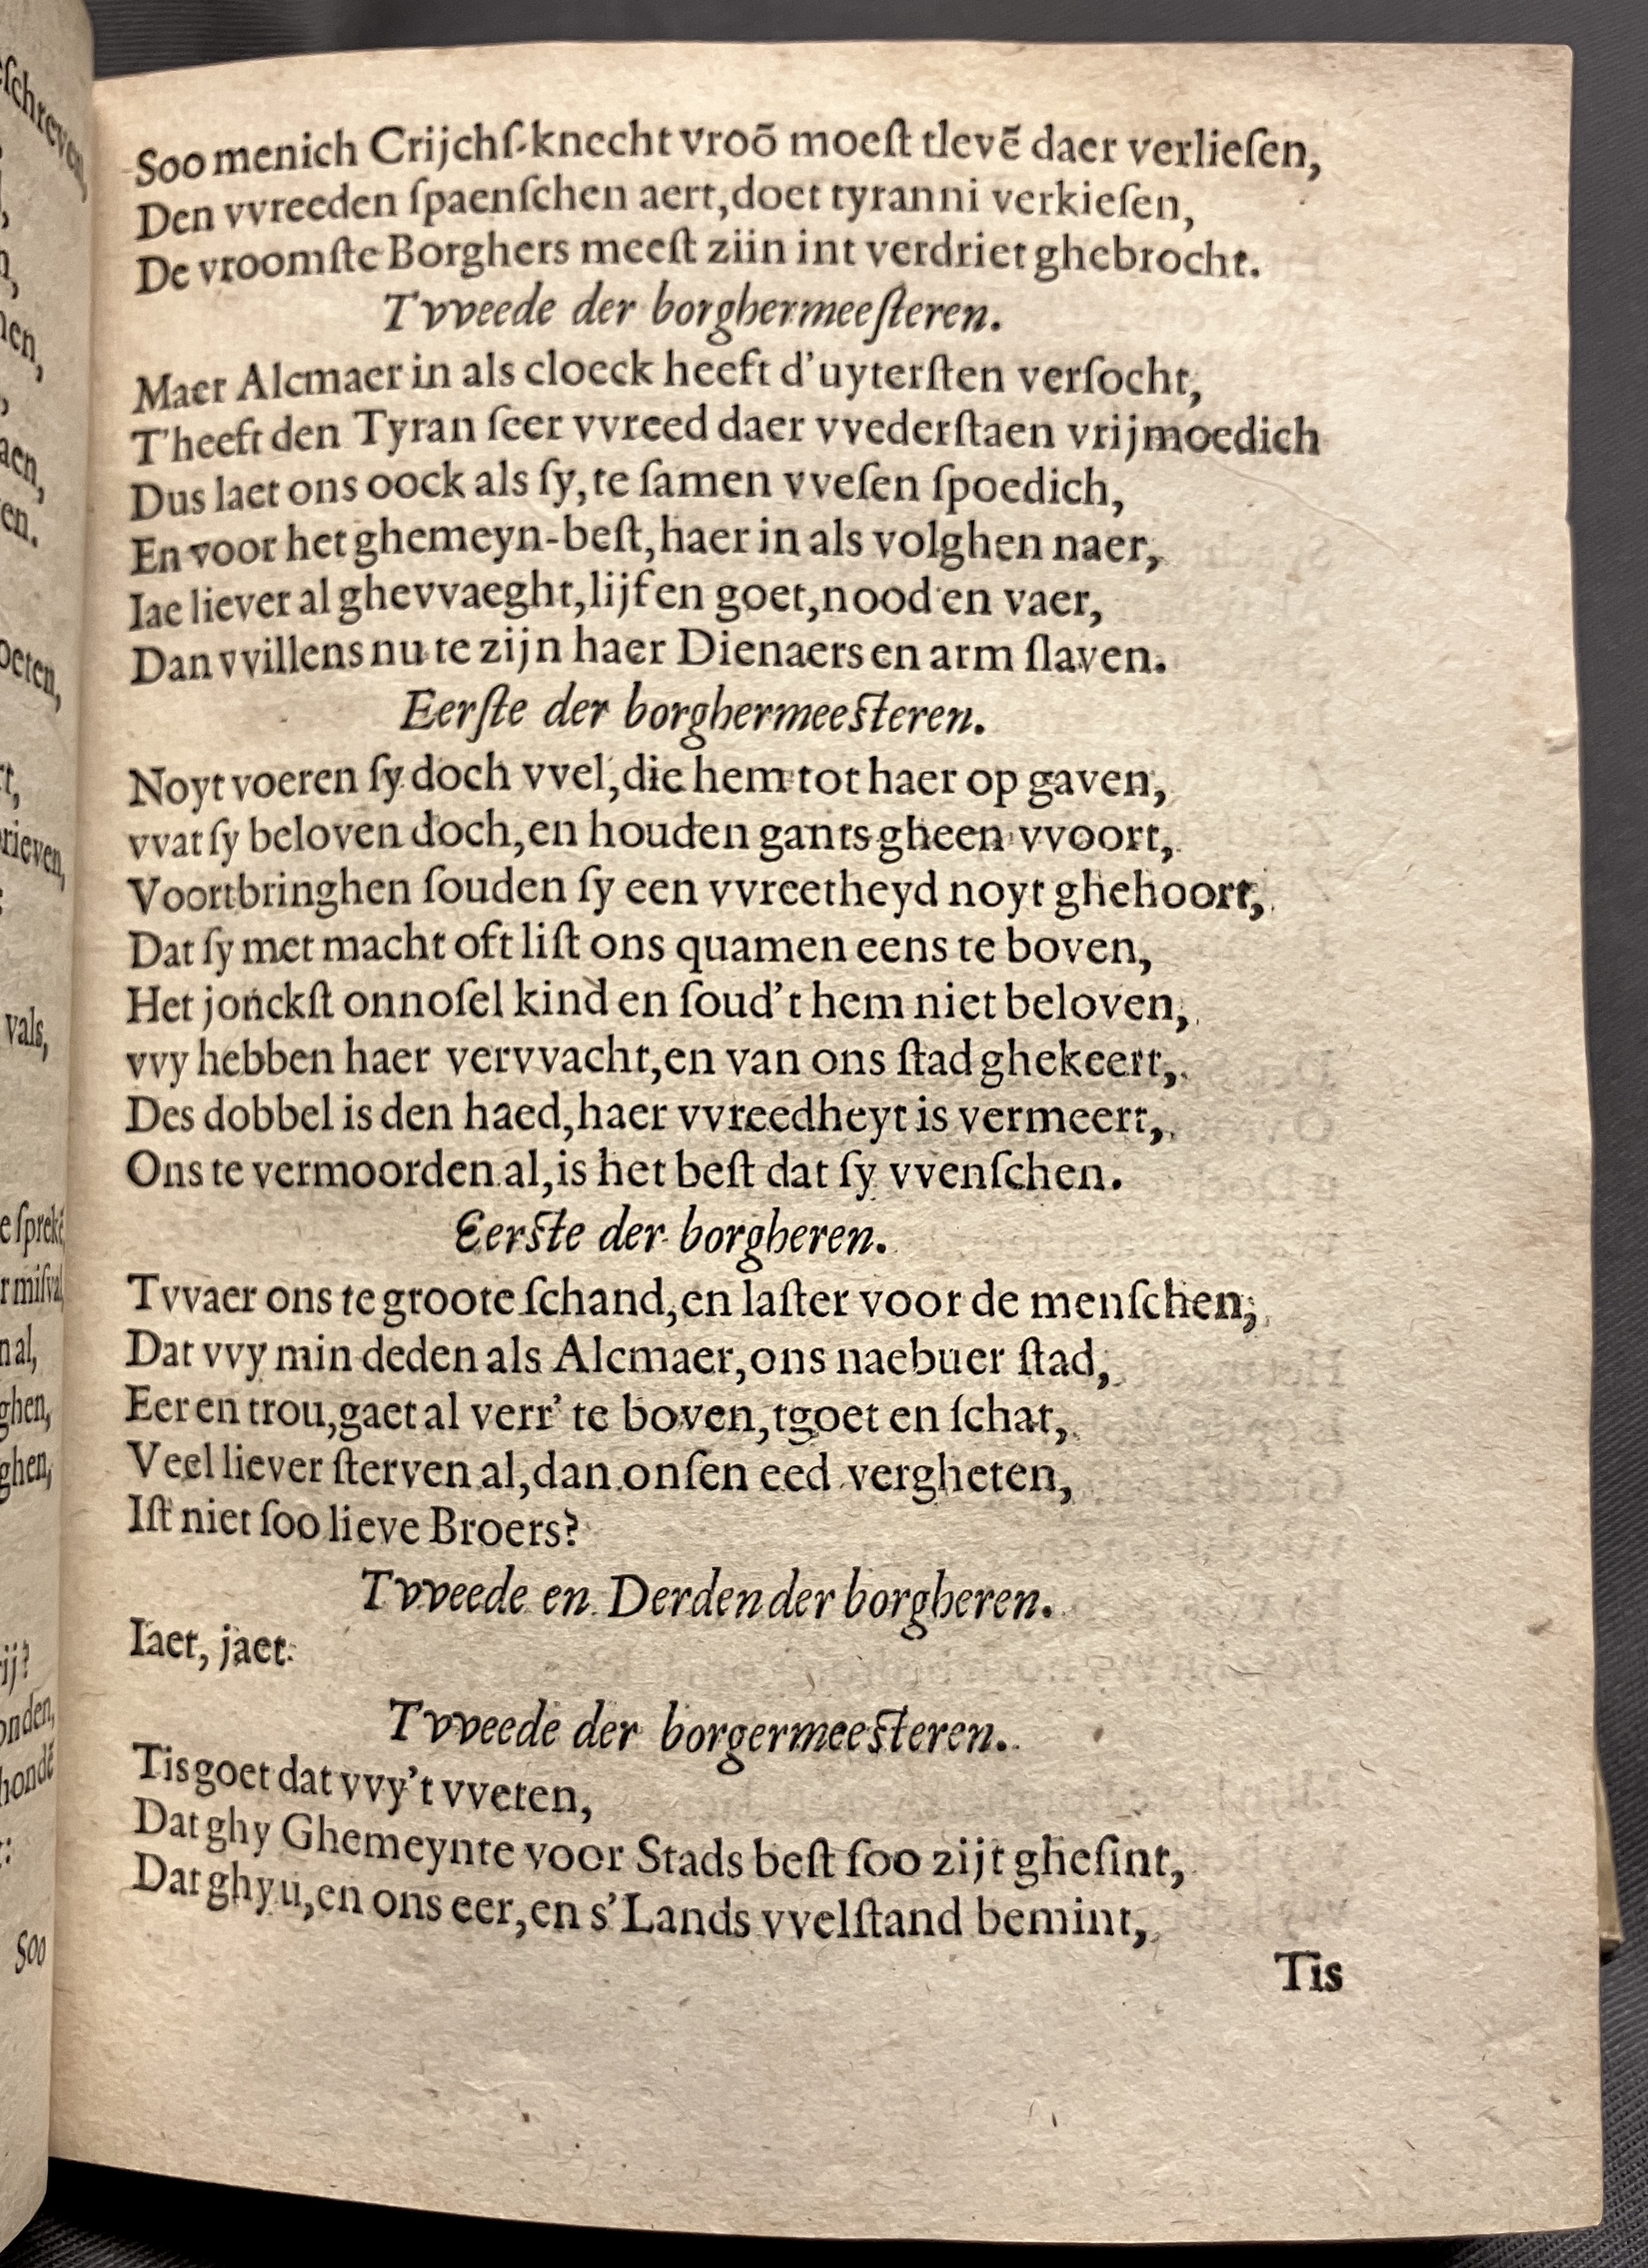 Soo menich Crijchſ-knecht vroõ moeſt tlevẽ daer verlieſen,
Den vvreeden ſpaenſchen aert, doet tyranni verkieſen,
De vroomſte Borghers meeſt ziin int verdriet ghebrocht.
Tvveede der borghermeeſteren.
Maer Alcmaer in als cloeck heeft d'uyterſten verſocht,
T'heeft den Tyran ſeer vvreed daer vvederſtaen vrijmoedich
Dus laet ons oock als ſy, te ſamen vveſen ſpoedich,
En voor het ghemeyn-beſt, haer in als volghen naer,
Iae liever al ghevvaeght, lijf en goet, nood en vaer,
Dan vvillens nu te zijn haer Dienaers en arm ſlaven.
Eerſte der borghermeeſteren.
Noyt voeren ſy doch vvel, die hem tot haer op gaven,
vvat ſy beloven doch, en houden gants gheen vvoort,
Voortbringhen ſouden ſy een vvreetheyd noyt ghehoort,
Dat ſy met macht oft liſt ons quamen eens te boven,
Het jonckſt onnoſel kind en ſoud't hem niet beloven,
vvy hebben haer vervvacht, en van ons ſtad ghekeert,
Des dobbel is den haed, haer vvreedheyt is vermeert,
Ons te vermoorden al, is het beſt dat ſy vvenſchen.
Eerſte der borgheren.
Tvvaer ons te groote ſchand, en laſter voor de menſchen,
Dat vvy min deden als Alcmaer, ons naebuer ſtad,
Eer en trou, gaet al verr' te boven, tgoet en ſchat,
Veel liever ſterven al, dan onſen eed vergheten,
Iſt niet ſoo lieve Broers?
Tvveede en Derden der borgheren.
Iaet, jaet.
Tvveede der borgermeeſteren.
Tis goet dat vvy't vveten,
Dat ghy Ghemeynte voor Stads beſt ſoo zijt gheſint,
Dat ghy u, en ons eer, en s'Lands vvelſtand bemint,
Tis